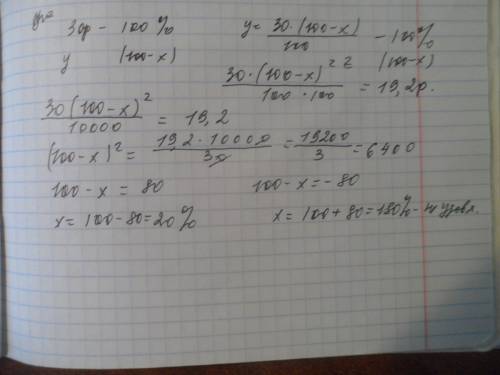 30р – 100%     y = 30·(100-x)/100 – 100%
y     (100-x)     z     (100-x)
30·(100-x)²/100·100 = 19,2р.
30(100-x)²/10000 = 19,2
(100-x)² = 19,2·10000/30 = 19200/3 = 6400
100-x = 80     100-x = -80
x = 100-80 = 20%     x = 100+80 = 180% -